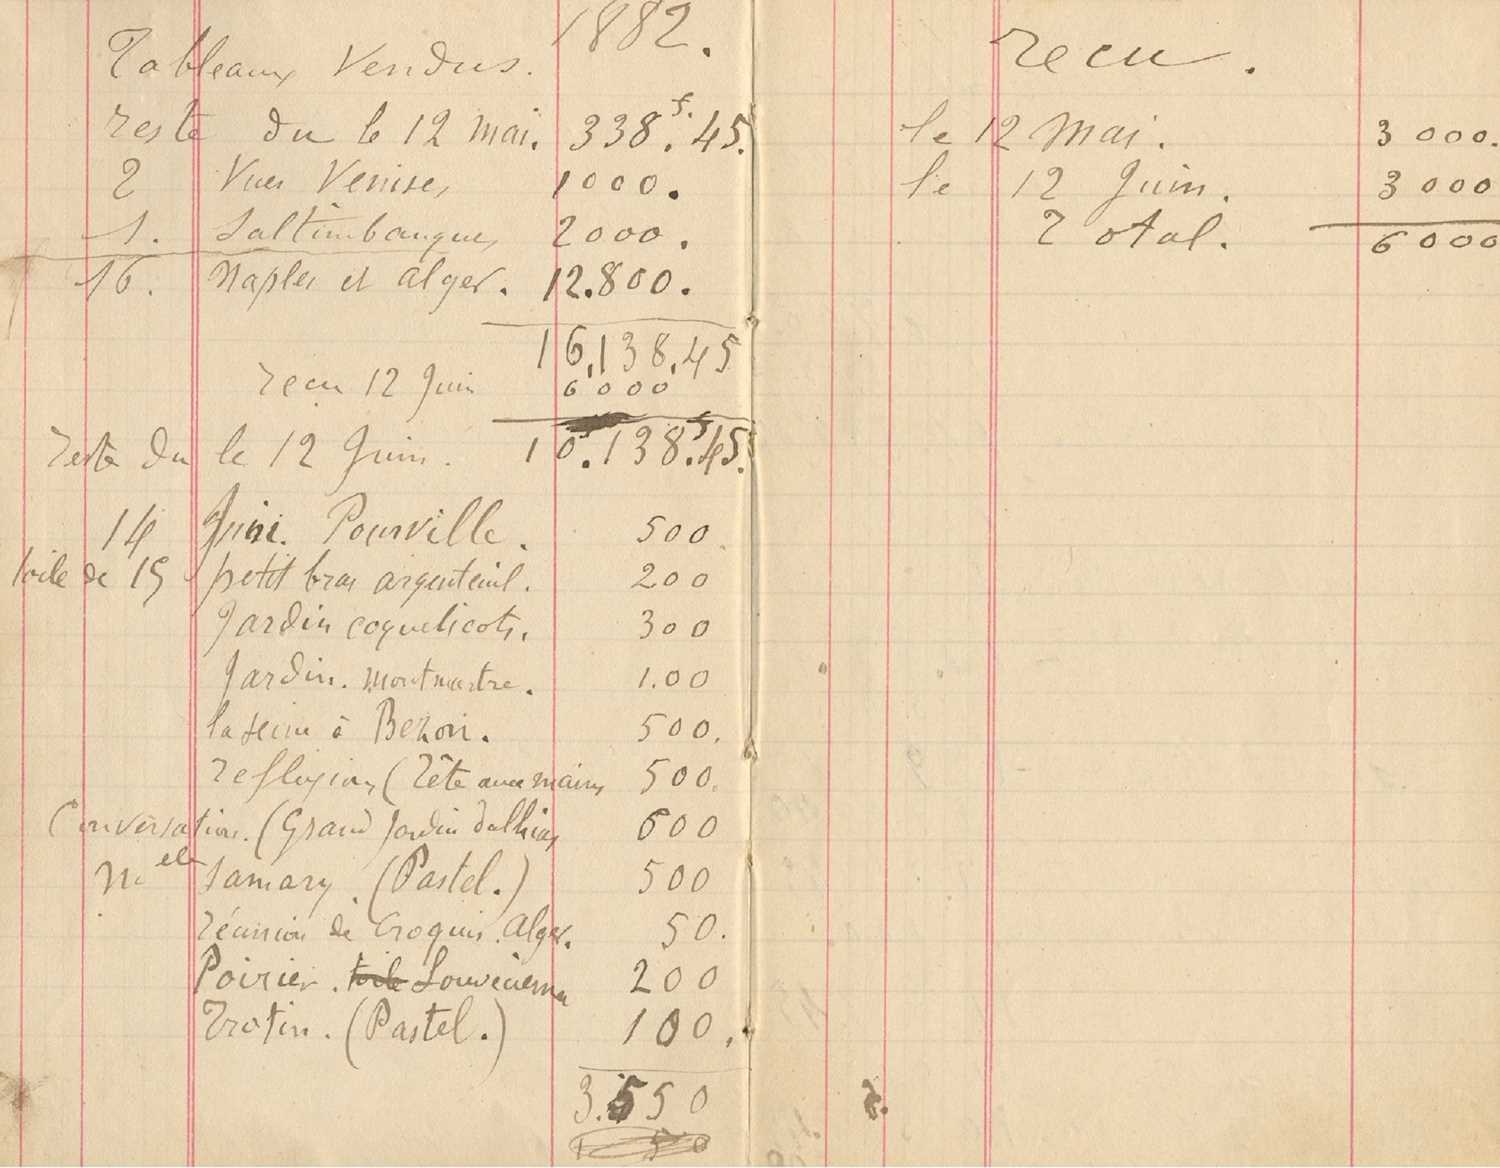 1882.
Tableaux Vendus.
reste du le 12 mai. 338.f.45.
2 Vues Venise, 1000.
1. Saltimbanques 2000.
16. Naples et alger. 12.800.
16,138,45
recu 12 Juin 6000
reste du le 12 Juin. 10.138.f.45.
14 Juin. Pourville. 500
toile de 15 petit bras argenteuil. 200
Jardin coquelicots. 300
Jardin. montmartre. 1.00
la seine à Bezon. 500.
reflexion (Tête aux mains 500.
Conversation. (Grand Jardin dalhias 600
Melle Samary. (Pastel.) 500
réunion de Croquis. Alger. 50.
Poirier. toile Louveciennes 200
Trotin. (Pastel.) 100.
3.550
50
recu.
le 12 Mai. 3000.
le 12 Juin. 3000
Total. 6000